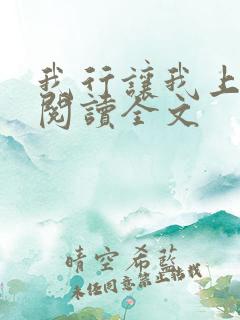 我行讓我上
閱讀全文
晴空希藍
未任同意禁止轉載